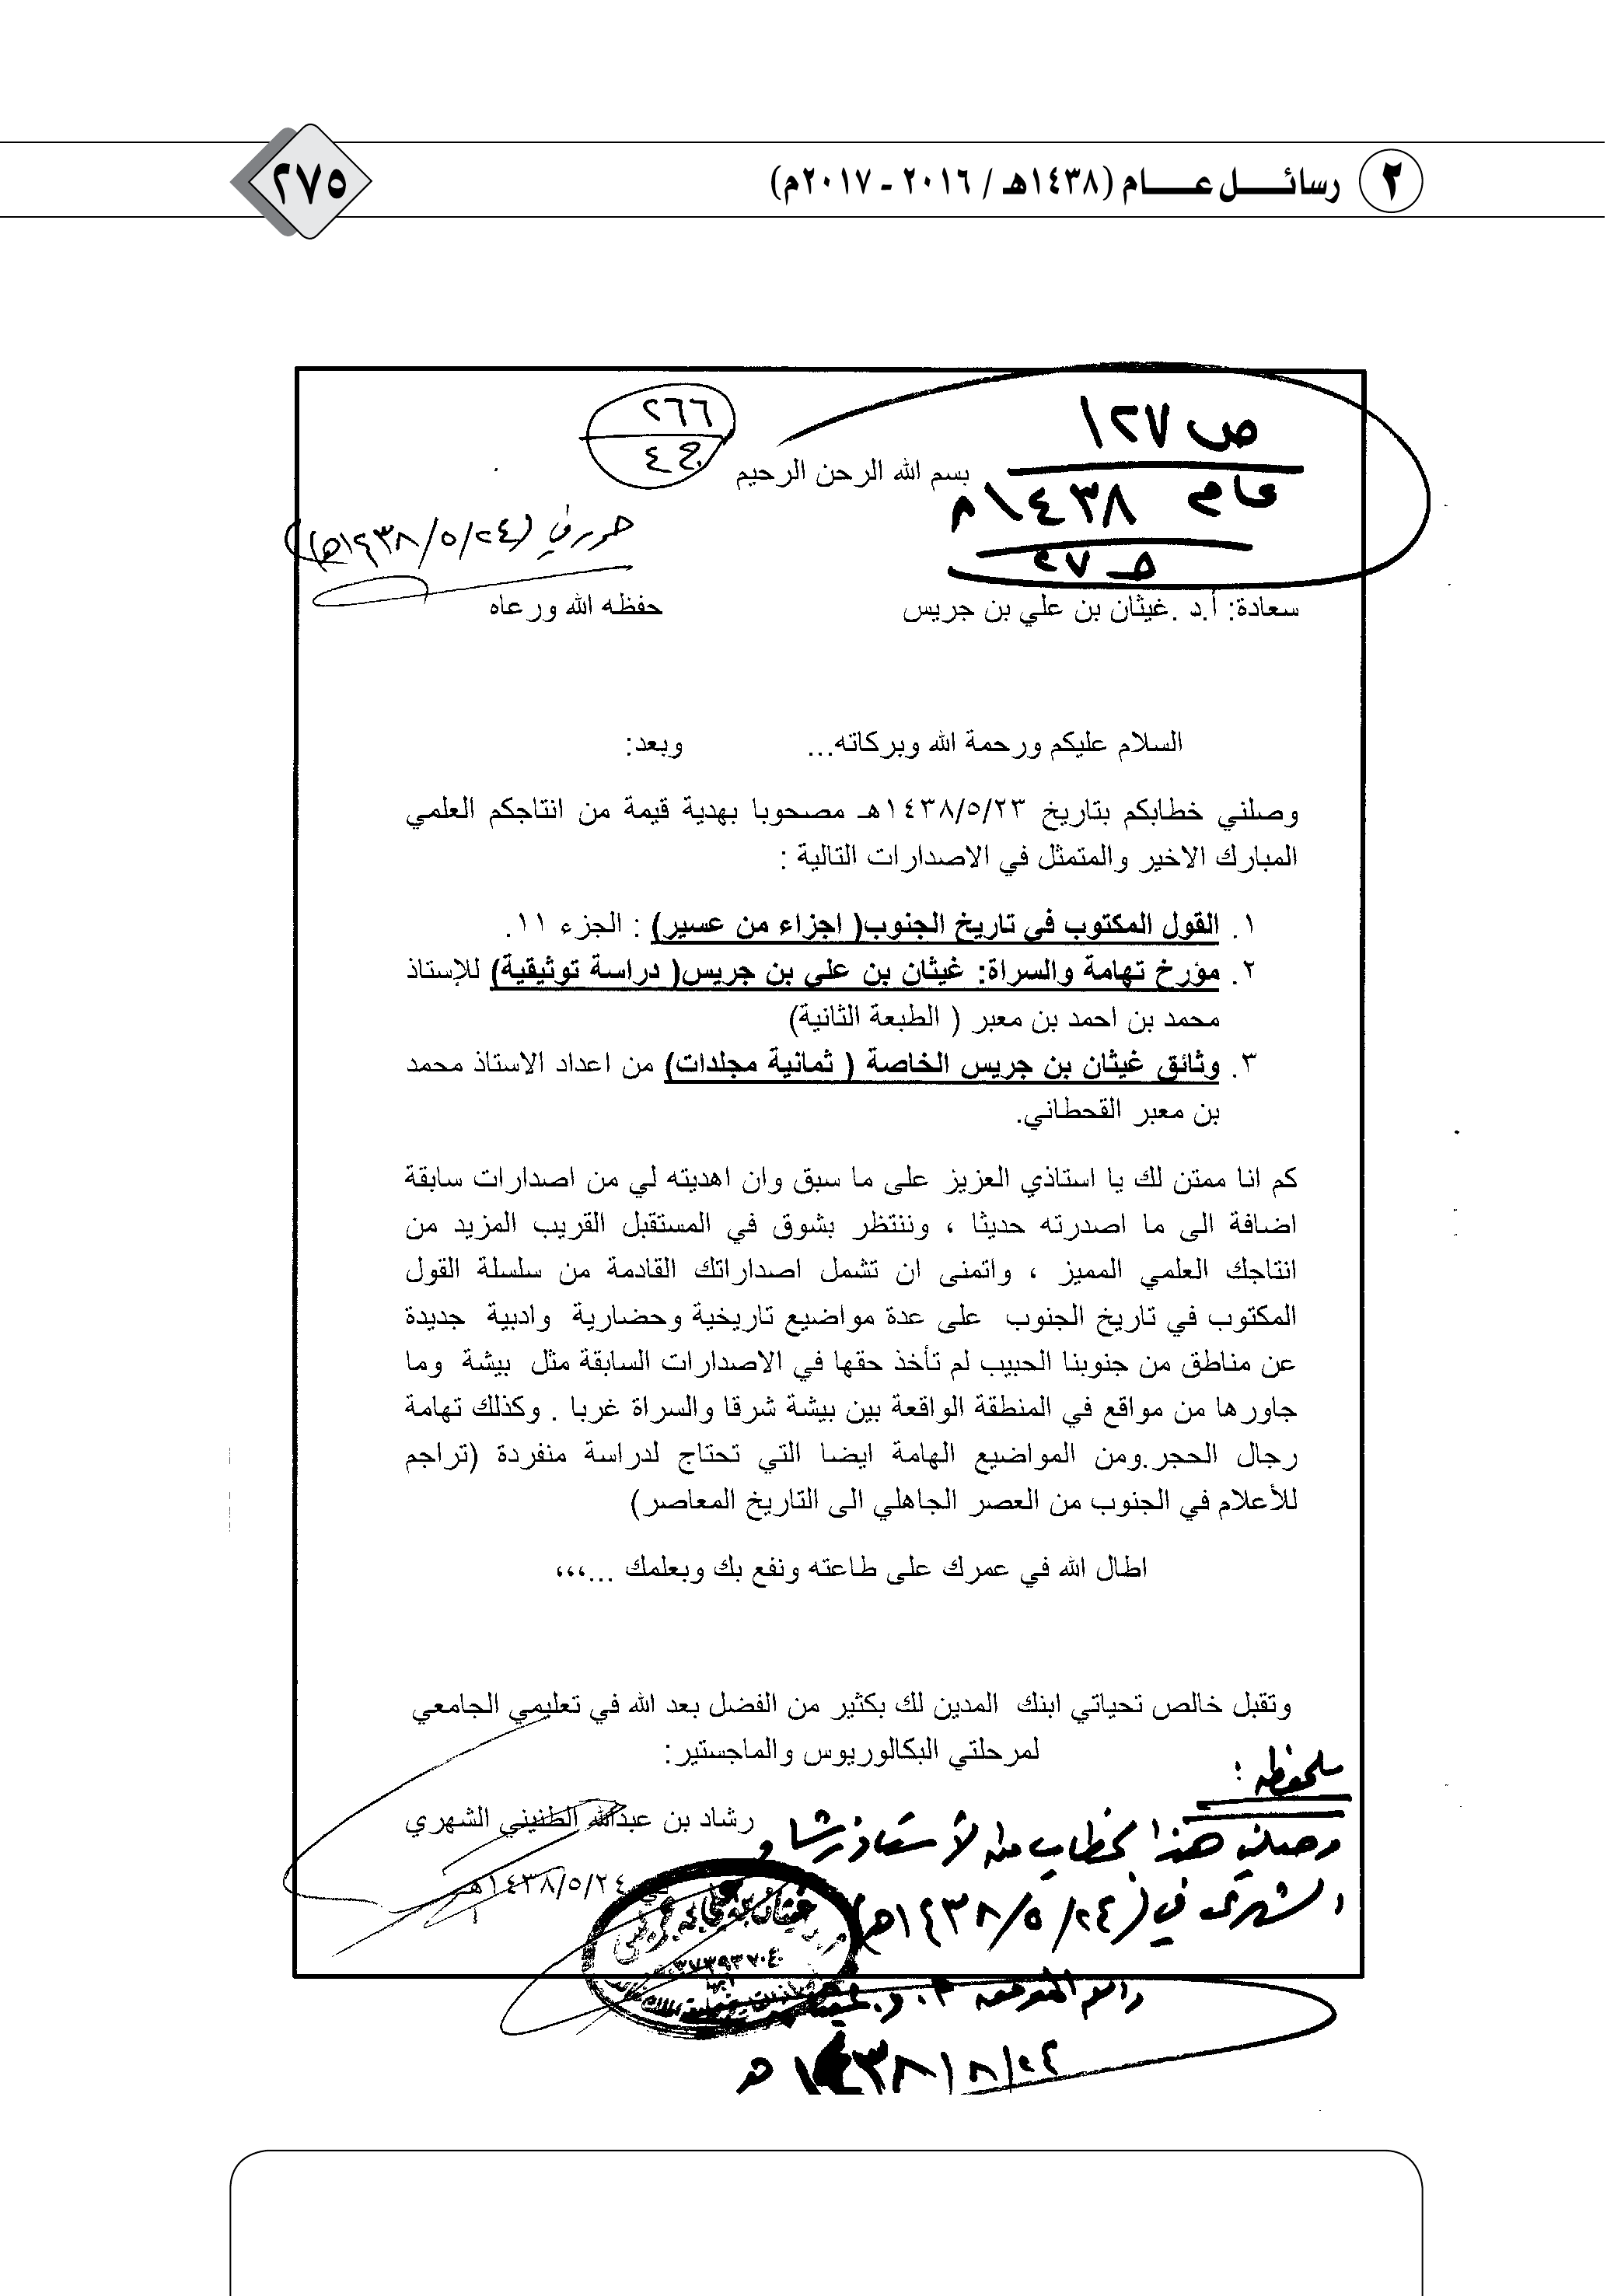 ٢ رسائل عام (١٤٣٨هـ / ٢٠١٦ - ٢٠١٧م)
٢٧٥
ص ١٢٧
عام ١٤٣٨هـ
٢٦٦
ج ٤
بسم الله الرحن الرحيم
(١٤٣٨/٥/٢٤هـ)
سعادة: أ.د .غيثان بن علي بن جريس حفظه الله ورعاه
السلام عليكم ورحمة الله وبركاته... وبعد:
وصلني خطابكم بتاريخ ١٤٣٨/٥/٢٣هـ مصحوبا بهدية قيمة من انتاجكم العلمي
المبارك الاخير والمتمثل في الاصدارات التالية :
١. القول المكتوب في تاريخ الجنوب( اجزاء من عسير) : الجزء ١١.
٢. مؤرخ تهامة والسراة: غيثان بن علي بن جريس( دراسة توثيقية) للإستاذ
محمد بن احمد بن معبر ( الطبعة الثانية)
٣. وثائق غيثان بن جريس الخاصة ( ثمانية مجلدات) من اعداد الاستاذ محمد
بن معبر القحطاني.
كم انا ممتن لك يا استاذي العزيز على ما سبق وان اهديته لي من اصدارات سابقة
اضافة الى ما اصدرته حديثا ، وننتظر بشوق في المستقبل القريب المزيد من
انتاجك العلمي المميز ، واتمنى ان تشمل اصداراتك القادمة من سلسلة القول
المكتوب في تاريخ الجنوب على عدة مواضيع تاريخية وحضارية وادبية جديدة
عن مناطق من جنوبنا الحبيب لم تأخذ حقها في الاصدارات السابقة مثل بيشة وما
جاورها من مواقع في المنطقة الواقعة بين بيشة شرقا والسراة غربا . وكذلك تهامة
رجال الحجر.ومن المواضيع الهامة ايضا التي تحتاج لدراسة منفردة (تراجم
للأعلام في الجنوب من العصر الجاهلي الى التاريخ المعاصر)
اطال الله في عمرك على طاعته ونفع بك وبعلمك ...،،،
وتقبل خالص تحياتي ابنك المدين لك بكثير من الفضل بعد الله في تعليمي الجامعي
لمرحلتي البكالوريوس والماجستير:
رشاد بن عبدالله الطنيني الشهري
في ١٤٣٨/٥/٢٤هـ
ملحوظه :
وصلني هذا الخطاب من الأستاذ رشاد
الشهري في (١٤٣٨/٥/٢٤هـ)
والله الموفق أ.د. غيثان
١٤٣٨/٨/٢٤هـ